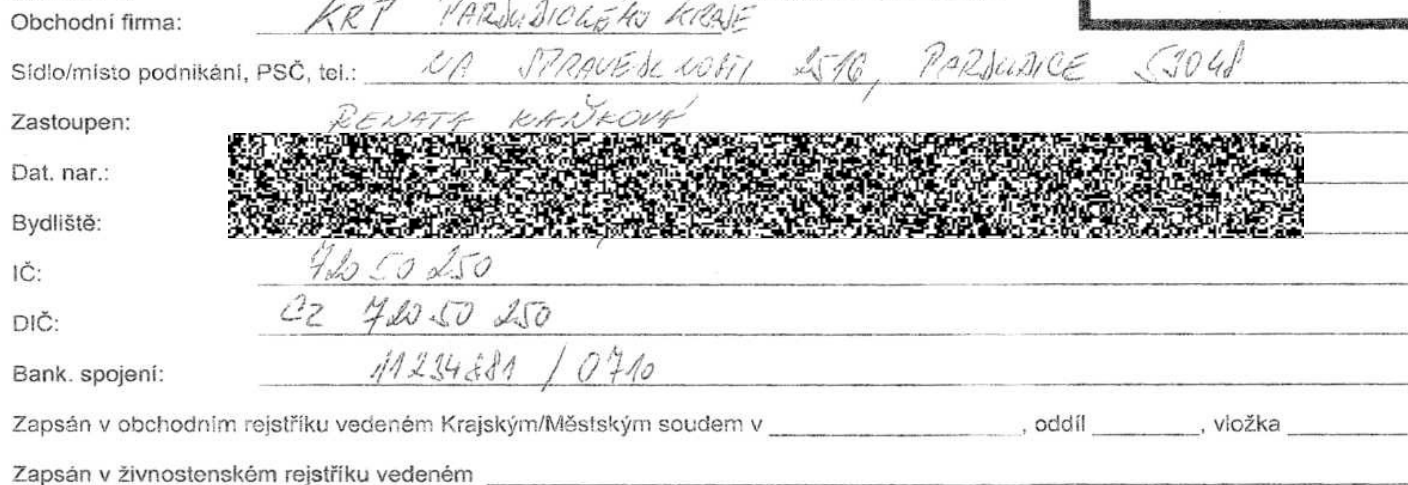 Obchodní firma: KRP PARDUBICKÉHO KRAJE
Sídlo/místo podnikání, PSČ, tel.: NA SPRAVEDLNOSTI 2516, PARDUBICE 53048
Zastoupen: RENATA KAŇKOVÁ
Dat. nar.:
Bydliště:
IČ: 72050250
DIČ: CZ 72050 250
Bank. spojení: 11234881 / 0710
Zapsán v obchodním rejstříku vedeném Krajským/Městským soudem v ____________, oddíl ________, vložka ________
Zapsán v živnostenském rejstříku vedeném ____________